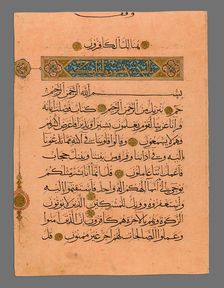 وقف
هنالك الكافرون
بسم الله الرحمن الرحيم
حم تنزيل من الرحمن الرحيم كتاب فصلت اياته
قرانا عربيا لقوم يعلمون بشيرا ونذيرا فاعرض اكثر
هم فهم لا يسمعون وقالوا قلوبنا في اكنة مما تدعونا
اليه وفي اذاننا وقر ومن بيننا وبينك حجاب
فاعمل اننا عاملون قل انما انا بشر مثلكم
يوحى الي انما الهكم اله واحد فاستقيموا
اليه واستغفروه وويل للمشركين الذين لا يؤتون
الزكوة وهم بالاخرة هم كافرون ان الذين امنوا
وعملوا الصالحات لهم اجر غير ممنون